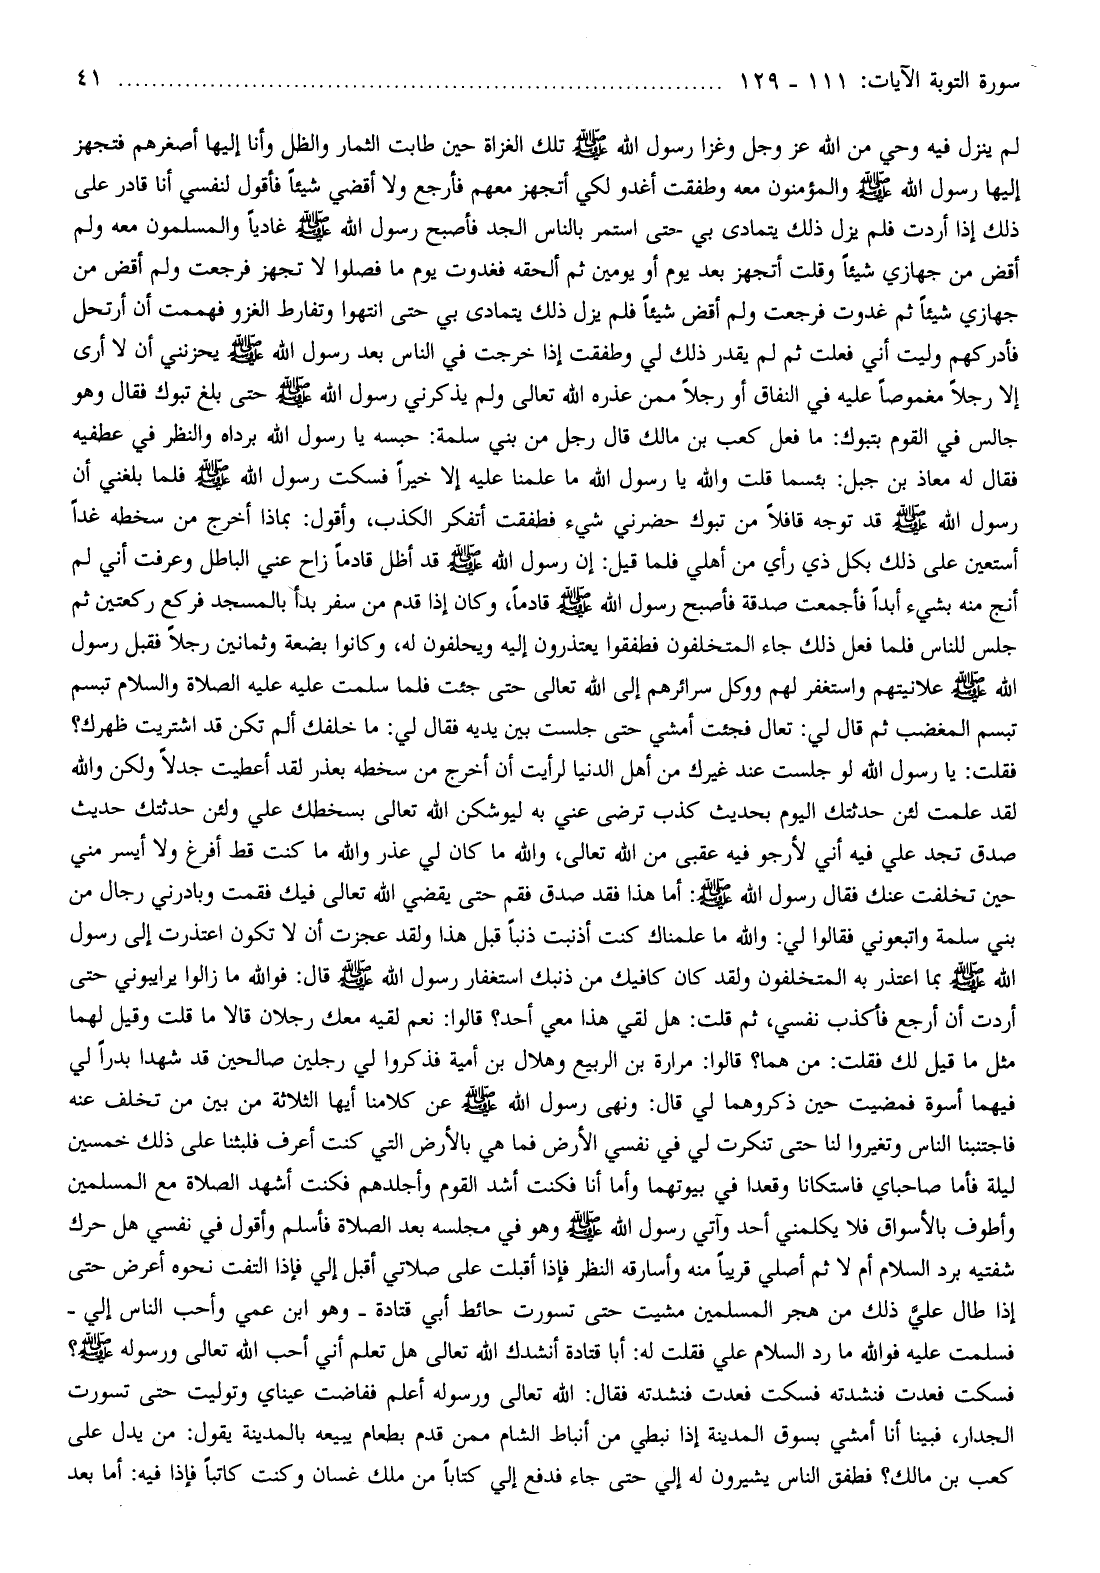 سورة التوبة الآيات: ١١١ - ١٢٩ ........................................................................ ٤١
لم ينزل فيه وحي من الله عز وجل وغزا رسول الله ﷺ تلك الغزاة حين طابت الثمار والظل وأنا إليها أصغرهم فتجهز
إليها رسول الله ﷺ والمؤمنون معه وطفقت أغدو لكي أتجهز معهم فأرجع ولا أقضي شيئاً فأقول لنفسي أنا قادر على
ذلك إذا أردت فلم يزل ذلك يتمادى بي حتى استمر بالناس الجد فأصبح رسول الله ﷺ غادياً والمسلمون معه ولم
أقض من جهازي شيئاً وقلت أتجهز بعد يوم أو يومين ثم ألحقه فغدوت يوم ما فصلوا لا تجهز فرجعت ولم أقض من
جهازي شيئاً ثم غدوت فرجعت ولم أقض شيئاً فلم يزل ذلك يتمادى بي حتى انتهوا وتفارط الغزو فهممت أن أرتحل
فأدركهم وليت أني فعلت ثم لم يقدر ذلك لي وطفقت إذا خرجت في الناس بعد رسول الله ﷺ يحزنني أن لا أرى
إلا رجلاً مغموصاً عليه في النفاق أو رجلاً ممن عذره الله تعالى ولم يذكرني رسول الله ﷺ حتى بلغ تبوك فقال وهو
جالس في القوم بتبوك: ما فعل كعب بن مالك قال رجل من بني سلمة: حبسه يا رسول الله برداه والنظر في عطفيه
فقال له معاذ بن جبل: بئسما قلت والله يا رسول الله ما علمنا عليه إلا خيراً فسكت رسول الله ﷺ فلما بلغني أن
رسول الله ﷺ قد توجه قافلاً من تبوك حضرني شيء فطفقت أتفكر الكذب، وأقول: بماذا أخرج من سخطه غداً
أستعين على ذلك بكل ذي رأي من أهلي فلما قيل: إن رسول الله ﷺ قد أظل قادماً زاح عني الباطل وعرفت أني لم
أنج منه بشيء أبداً فأجمعت صدقة فأصبح رسول الله ﷺ قادماً، وكان إذا قدم من سفر بدأ بالمسجد فركع ركعتين ثم
جلس للناس فلما فعل ذلك جاء المتخلفون فطفقوا يعتذرون إليه ويحلفون له، وكانوا بضعة وثمانين رجلاً فقبل رسول
الله ﷺ علانيتهم واستغفر لهم ووكل سرائرهم إلى الله تعالى حتى جئت فلما سلمت عليه عليه الصلاة والسلام تبسم
تبسم المغضب ثم قال لي: تعال فجئت أمشي حتى جلست بين يديه فقال لي: ما خلفك ألم تكن قد اشتريت ظهرك؟
فقلت: يا رسول الله لو جلست عند غيرك من أهل الدنيا لرأيت أن أخرج من سخطه بعذر لقد أعطيت جدلاً ولكن والله
لقد علمت لئن حدثتك اليوم بحديث كذب ترضى عني به ليوشكن الله تعالى بسخطك علي ولئن حدثتك حديث
صدق تجد علي فيه أني لأرجو فيه عقبى من الله تعالى، والله ما كان لي عذر والله ما كنت قط أفرغ ولا أيسر مني
حين تخلفت عنك فقال رسول الله ﷺ: أما هذا فقد صدق فقم حتى يقضي الله تعالى فيك فقمت وبادرني رجال من
بني سلمة واتبعوني فقالوا لي: والله ما علمناك كنت أذنبت ذنباً قبل هذا ولقد عجزت أن لا تكون اعتذرت إلى رسول
الله ﷺ بما اعتذر به المتخلفون ولقد كان كافيك من ذنبك استغفار رسول الله ﷺ قال: فوالله ما زالوا يرايبوني حتى
أردت أن أرجع فأكذب نفسي، ثم قلت: هل لقي هذا معي أحد؟ قالوا: نعم لقيه معك رجلان قالا ما قلت وقيل لهما
مثل ما قيل لك فقلت: من هما؟ قالوا: مرارة بن الربيع وهلال بن أمية فذكروا لي رجلين صالحين قد شهدا بدراً لي
فيهما أسوة فمضيت حين ذكروهما لي قال: ونهى رسول الله ﷺ عن كلامنا أيها الثلاثة من بين من تخلف عنه
فاجتنبنا الناس وتغيروا لنا حتى تنكرت لي في نفسي الأرض فما هي بالأرض التي كنت أعرف فلبثنا على ذلك خمسين
ليلة فأما صاحباي فاستكانا وقعدا في بيوتهما وأما أنا فكنت أشد القوم وأجلدهم فكنت أشهد الصلاة مع المسلمين
وأطوف بالأسواق فلا يكلمني أحد وآتي رسول الله ﷺ وهو في مجلسه بعد الصلاة فأسلم وأقول في نفسي هل حرك
شفتيه برد السلام أم لا ثم أصلي قريباً منه وأسارقه النظر فإذا أقبلت على صلاتي أقبل إلي فإذا التفت نحوه أعرض حتى
إذا طال عليَّ ذلك من هجر المسلمين مشيت حتى تسورت حائط أبي قتادة - وهو ابن عمي وأحب الناس إلي -
فسلمت عليه فوالله ما رد السلام علي فقلت له: أبا قتادة أنشدك الله تعالى هل تعلم أني أحب الله تعالى ورسوله ﷺ؟
فسكت فعدت فنشدته فسكت فعدت فنشدته فقال: الله تعالى ورسوله أعلم ففاضت عيناي وتوليت حتى تسورت
الجدار، فبينا أنا أمشي بسوق المدينة إذا نبطي من أنباط الشام ممن قدم بطعام يبيعه بالمدينة يقول: من يدل على
كعب بن مالك؟ فطفق الناس يشيرون له إلي حتى جاء فدفع إلي كتاباً من ملك غسان وكنت كاتباً فإذا فيه: أما بعد